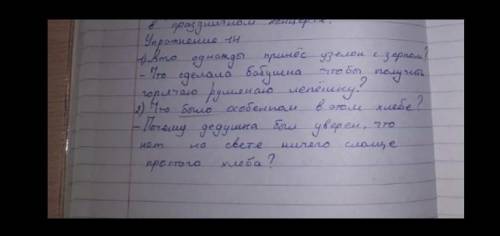 в праздничном концерте?
Упражнение 14
1) Кто однажды принёс узелок с зерном?
- Что сделала бабушка чтобы получить
горячую румяную лепёшку?
2) Что было особенном в этом хлебе?
- Почему дедушка был уверен, что
нет на свете ничего слаще
простого хлеба?